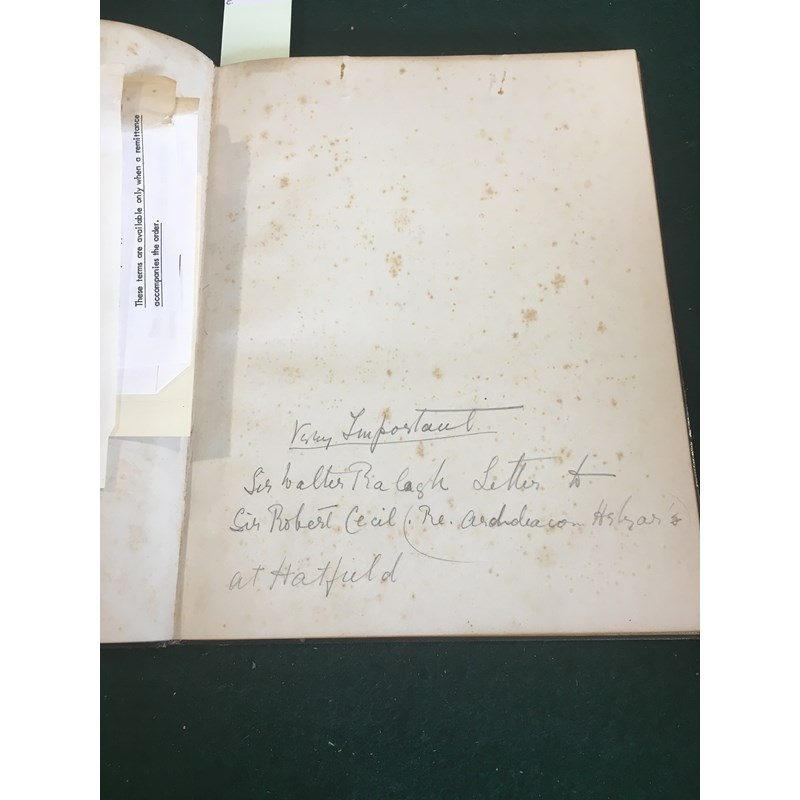 These terms are available only when a remittance
accompanies the order.
Very Important
Sir Walter Ralagh Letter to
Sir Robert Cecil (. Re. Archdeacon
at Hatfield